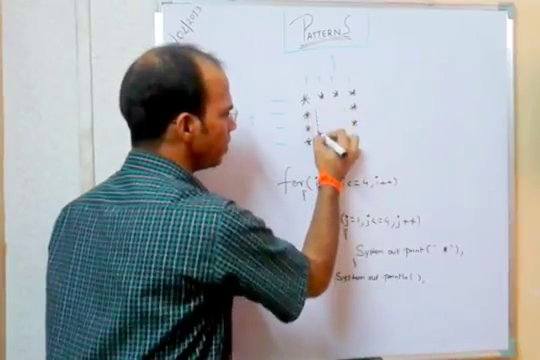 /02/2013
PATTERNS
* * * *
* *
* *
*
for(i <=4, i++)
(j=1, j<=4, j++)
System out print(" * "),
System out println( ),